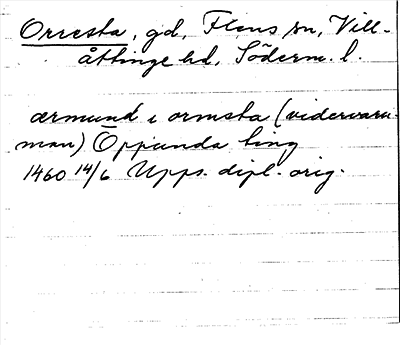 Orresta, gd, Flens sn, Vill-
åttinge hd, Söderm. l.
ærmund i ormsta (vidervaru-
man) Oppunda ting
1460 14/6 Upps. dipl. orig.